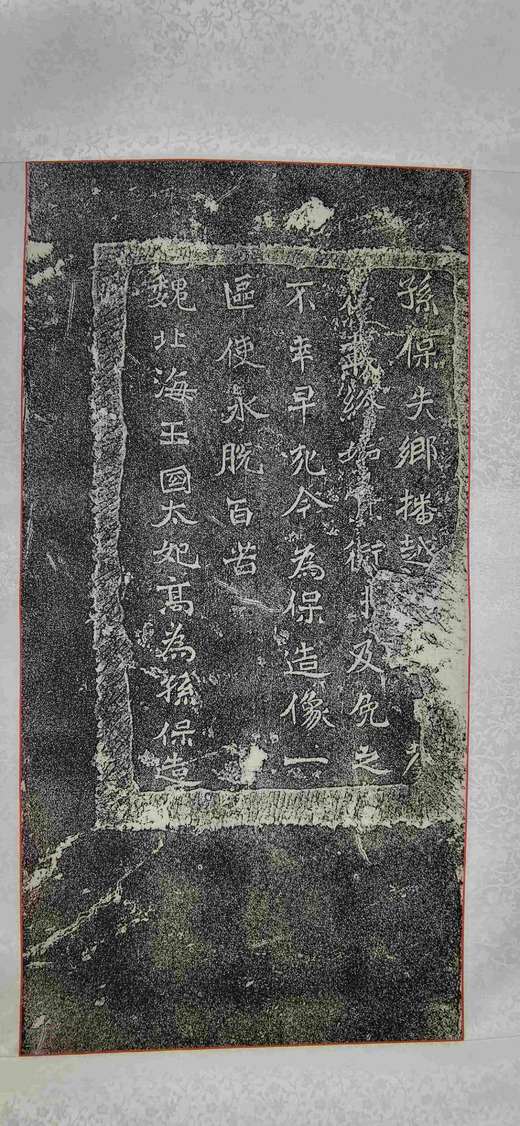 孫保失鄉播越
終衘及免之
不幸早死今為保造像一
區使永脫百苦
魏北海王國太妃高為孫保造